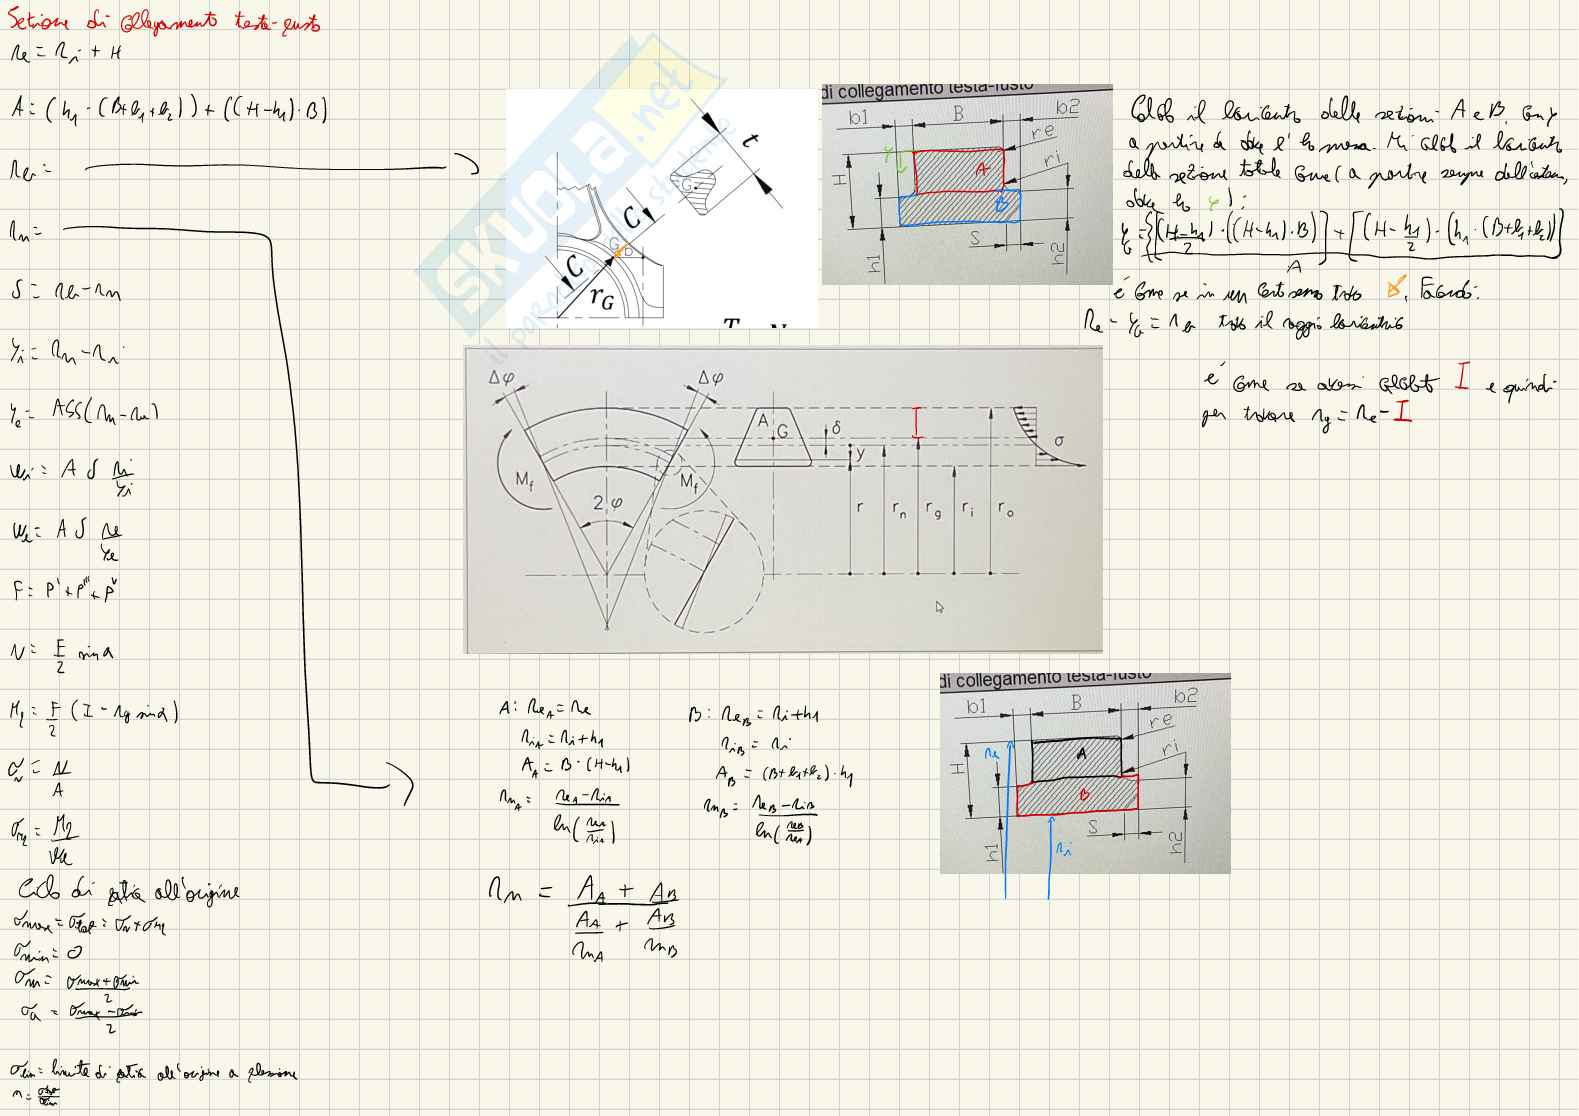 Sezione di collegamento testa-fusto
re = ri + H
A = (h1 · (B+b1+b2)) + ((H-h1)·B)
rG =
rn =
δ = rG - rn
yi = rn - ri
ye = ASS(rn - re)
Wi = A δ ri/yi
We = A δ re/ye
F = P' + P''' + P^v
N = F/2 sin α
Mf = F/2 (I - rg sin α)
σN = N/A
σMf = Mf/We
Ciclo di fatica all'origine
σmax = σtot = σN + σMf
σmin = 0
σm = (σmax + σmin)/2
σa = (σmax - σmin)/2
σlim = limite di fatica all'origine a flessione
n =
SKUOLA.net
t
G
C
G
C
rG
di collegamento testa-fusto
b1 B b2
re
ri
H
A
B
S
h1
h2
y
Calcolo il baricentro delle sezioni A e B, con y
a partire da dove l'ho messa. Mi calcolo il baricentro
della sezione totale come (a partire sempre dell'esterno,
dove ho y):
yG = {[(H-h1)/2 · ((H-h1)·B)] + [(H - h1/2) · (h1 · (B+b1+b2))]} / A
è come se in un certo senso trovo
. Facendo:
re - yG = rG trovo il raggio baricentrico
è come se avessi calcolato I e quindi
per trovare rg = re - I
Δφ Δφ
Mf Mf
2φ
A G
δ
y
r rn rg ri ro
σ
A: reA = re
riA = ri + h1
AA = B · (H-h1)
rnA = (reA - riA) / ln(reA/riA)
B: reB = ri + h1
riB = ri
AB = (B+b1+b2) · h1
rnB = (reB - riB) / ln(reB/riB)
rn = (AA + AB) / (AA/rnA + AB/rnB)
di collegamento testa-fusto
b1 B b2
re
ri
re
H
A
B
S
h1
h2
ri